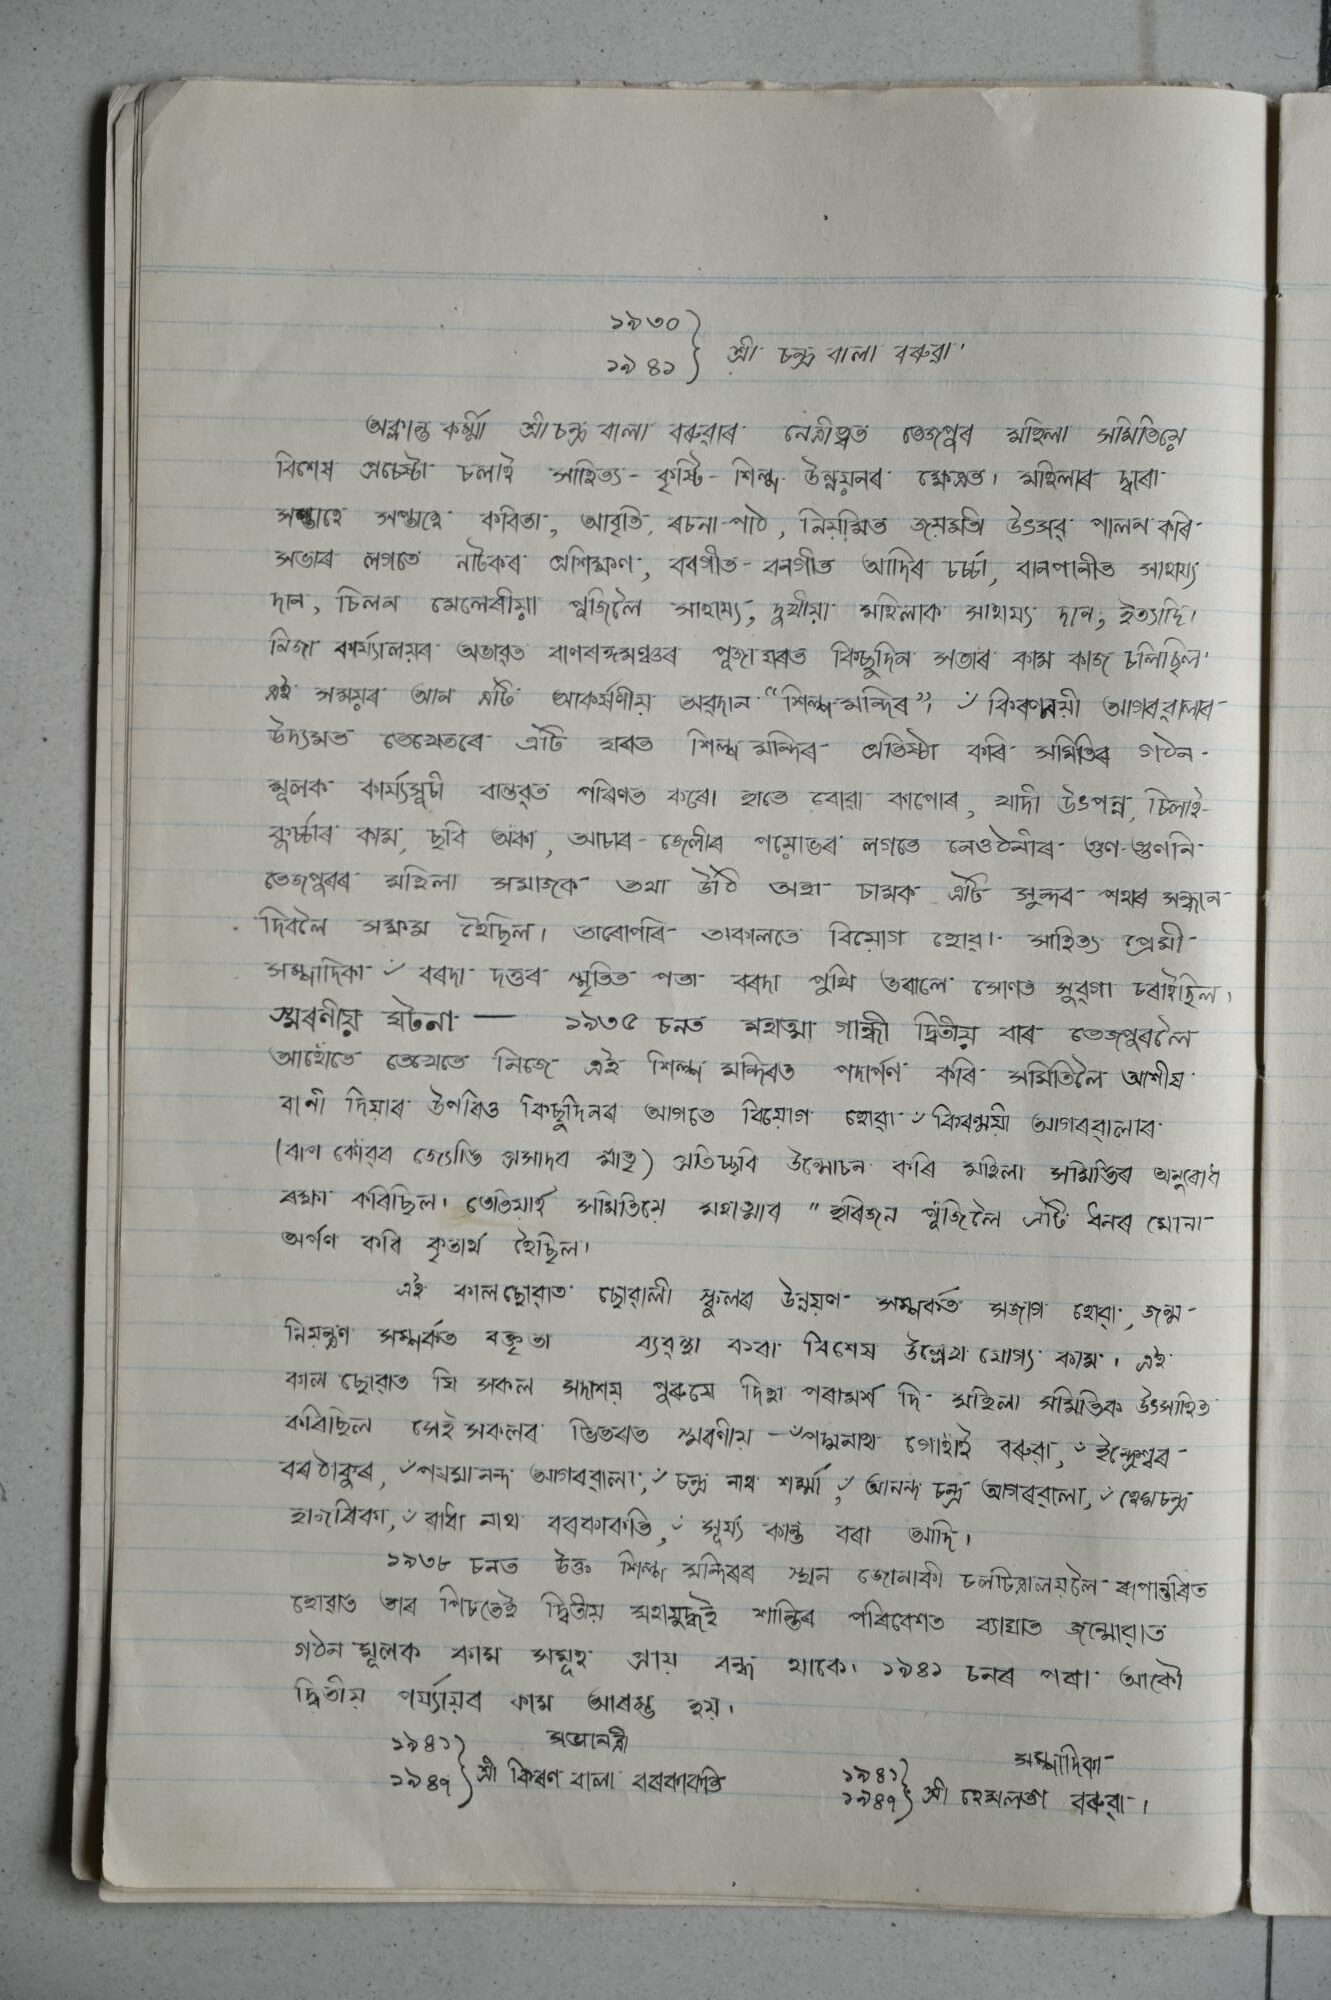 ১৯৩০
১৯৪১ } শ্ৰী চন্দ্ৰ বালা বৰুৱা।
অক্লান্ত কৰ্ম্মী শ্ৰী চন্দ্ৰ বালা বৰুৱাৰ নেত্ৰীত্বত তেজপুৰ মহিলা সমিতিয়ে
বিশেষ প্ৰচেষ্টা চলাই সাহিত্য - কৃষ্টি - শিল্প উন্নয়নৰ ক্ষেত্ৰত। মহিলাৰ দ্বাৰা
সপ্তাহে সপ্তাহে কবিতা, আবৃতি, ৰচনা-পাঠ, নিয়মিত জয়মতী উৎসৱ পালন কৰি
সভাৰ লগতে নাটকৰ প্ৰশিক্ষণ, বৰগীত - বনগীত আদিৰ চৰ্চ্চা, বানপানীত সাহায্য
দান, চিলন মেলেৰীয়া পুঁজিলৈ সাহায্য, দুখীয়া মহিলাক সাহায্য দান, ইত্যাদি।
নিজা কাৰ্য্যালয়ৰ অভাৱত বাণৰঙ্গমঞ্চৰ পূজা ঘৰত কিছুদিন সভাৰ কাম কাজ চলিছিল।
এই সময়ৰ আন এটি আকৰ্ষণীয় অৱদান "শিল্প মন্দিৰ"। ঁ কিৰণময়ী আগৰৱালাৰ
উদ্যমত তেখেতৰে এটি ঘৰত শিল্প মন্দিৰ প্ৰতিষ্ঠা কৰি সমিতিৰ গঠন-
মূলক কাৰ্য্যসূচী বাস্তৱত পৰিণত কৰে। হাতে বোৱা কাপোৰ, খাদী উৎপন্ন, চিলাই-
কুৰ্চ্চাৰ কাম, ছবি অঁকা, আচাৰ - জেলীৰ পয়োভৰ লগতে নেওঠনীৰ গুণ-গুণনি
তেজপুৰৰ মহিলা সমাজক তথা উঠি অহা চামক এটি সুন্দৰ পথৰ সন্ধান
দিবলৈ সক্ষম হৈছিল। তাৰোপৰি অকালতে বিয়োগ হোৱা সাহিত্য প্ৰেমী
সম্পাদিকা ঁ বৰদা দত্তৰ স্মৃতিত পতা বৰদা পুথি ভৰালে সোণত সুৱগা চৰাইছিল।
স্মৰণীয় ঘটনা — ১৯৩৫ চনত মহাত্মা গান্ধী দ্বিতীয় বাৰ তেজপুৰলৈ
আহোঁতে তেখেতে নিজে এই শিল্প মন্দিৰত পদাৰ্পণ কৰি সমিতিলৈ আশীষ
বাণী দিয়াৰ উপৰিও কিছুদিনৰ আগতে বিয়োগ হোৱা ঁ কিৰণ্ময়ী আগৰৱালাৰ
(ৰূপ কোঁৱৰ জ্যোতি প্ৰসাদৰ মাতৃ) প্ৰতিচ্ছবি উন্মোচন কৰি মহিলা সমিতিৰ অনুৰোধ
ৰক্ষা কৰিছিল। তেতিয়াই সমিতিয়ে মহাত্মাৰ " হৰিজন পুঁজিলৈ এটি ধনৰ মোনা
অৰ্পণ কৰি কৃতাৰ্থ হৈছিল।
এই কালছোৱাত ছোৱালী স্কুলৰ উন্নয়ণ সম্পৰ্কত সজাগ হোৱা, জন্ম-
নিয়ন্ত্ৰণ সম্পৰ্কত বক্তৃতা ব্যৱস্থা কৰা বিশেষ উল্লেখ যোগ্য কাম। এই
কাল ছোৱাত যি সকল সদাশয় পুৰুষে দিহা পৰামৰ্শ দি মহিলা সমিতিক উৎসাহিত
কৰিছিল সেই সকলৰ ভিতৰত স্মৰণীয় - ঁ পদ্মনাথ গোহাঁই বৰুৱা, ঁ ইন্দ্ৰেশ্বৰ
বৰঠাকুৰ, ঁ পৰমানন্দ আগৰৱালা, ঁ চন্দ্ৰ নাথ শৰ্ম্মা, ঁ আনন্দ চন্দ্ৰ আগৰৱালা, ঁ হেমচন্দ্ৰ
হাজৰিকা, ঁ ৰাধা নাথ বৰকাকতি, ঁ সূৰ্য্য কান্ত বৰা আদি।
১৯৩৮ চনত উক্ত শিল্প মন্দিৰৰ স্থান জোনাকী চলচিত্ৰালয়লৈ ৰূপান্তৰিত
হোৱাত তাৰ পিচতেই দ্বিতীয় মহাযুদ্ধই শান্তিৰ পৰিবেশত ব্যাঘাত জন্মোৱাত
গঠন মূলক কাম সমূহ প্ৰায় বন্ধ থাকে। ১৯৪১ চনৰ পৰা আকৌ
দ্বিতীয় পৰ্য্যায়ৰ কাম আৰম্ভ হয়।
সভানেত্ৰী
১৯৪১
১৯৪৭ } শ্ৰী কিৰণ বালা বৰকাকতি
সম্পাদিকা
১৯৪১
১৯৪৭ } শ্ৰী হেমলতা বৰুৱা।